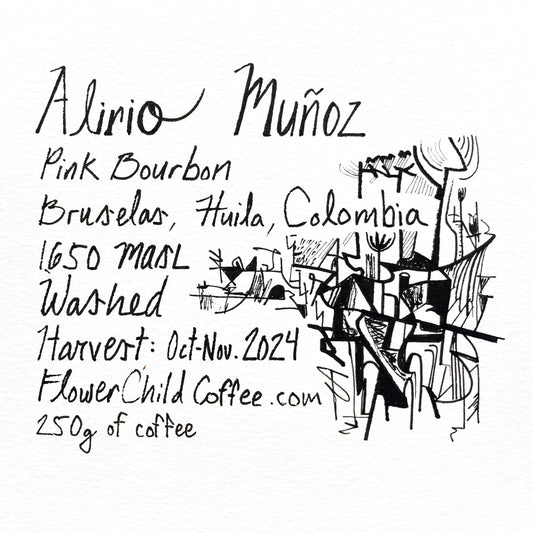 Alirio Muñoz
Pink Bourbon
Bruselas, Huila, Colombia
1650 MASL
Washed
Harvest: Oct-Nov. 2024
FlowerChildCoffee.com
250g of coffee